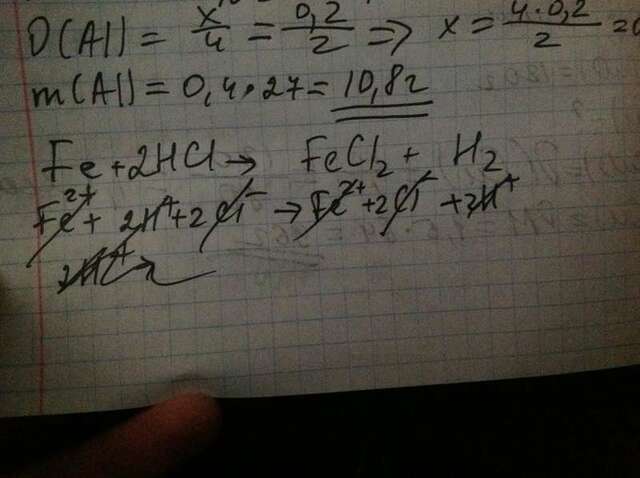 ν(Al) = x/4 = 0,2/2 => x = 4·0,2/2 = 0
m(Al) = 0,4·27 = 10,8г
Fe + 2HCl → FeCl₂ + H₂
Fe²⁺ + 2H⁺ + 2Cl⁻ → Fe²⁺ + 2Cl⁻ + 2H⁺